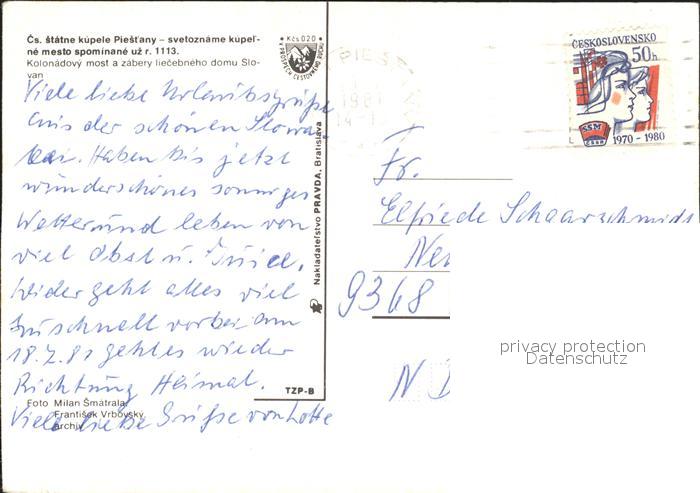 Čs. štátne kúpele Piešťany – svetoznáme kúpeľ-
né mesto spomínané už r. 1113.
Kolonádový most a zábery liečebného domu Slo-
van
Kčs 0,20
Viele liebe Urlaubsgrüße
aus der schönen Slowa-
kei. Haben bis jetzt
wunderschönes sonniges
Wetter und leben von
viel Obst u.
Leider geht alles viel
zu schnell vorbei. Am
18.7.81 geht es wieder
Richtung Heimat.
Viele liebe Grüße von Lotte
Foto Milan Šmátrala,
František Vrbovský,
archív
TZP-B
Nakladateľstvo PRAVDA, Bratislava
ČESKOSLOVENSKO
50h
SSM
ČSSR
1970 - 1980
Fr.
Elfriede Schaarschmidt
Neu
9368
privacy protection
Datenschutz